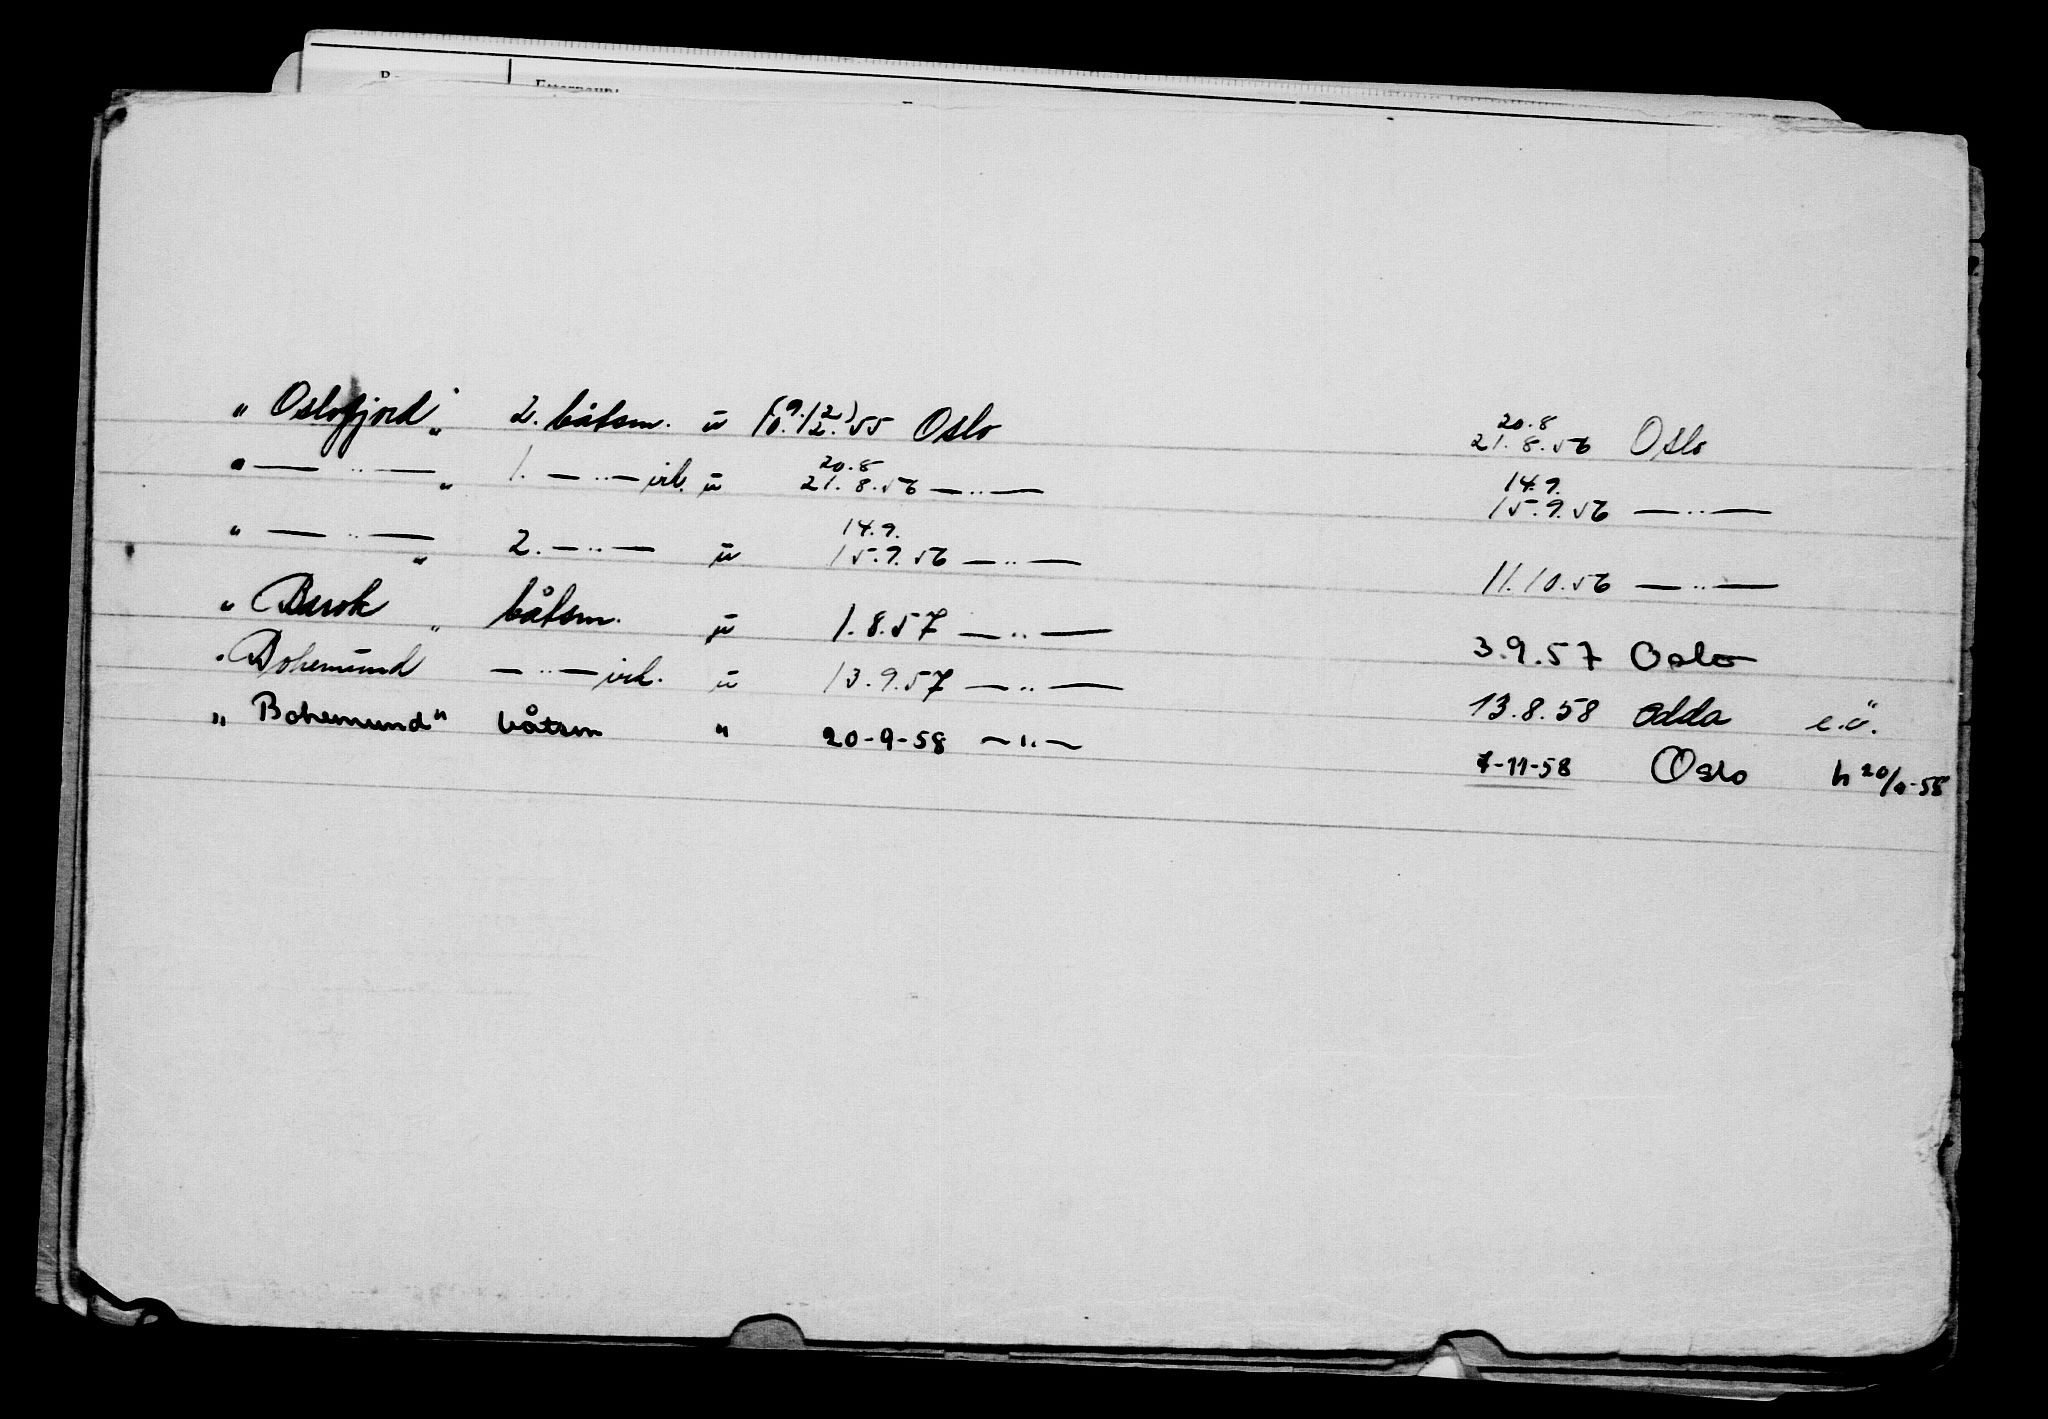 „ Oslofjord „ 2. båtsm. u (9./12) 10.12.55 Oslo 20.8 21.8.56 Oslo
„ — „ — „ 1. — „ — u 20.8 21.8.56 — „ — 14.9. 15.9.56 — „ —
„ — „ — „ 2. — „ — u 14.9. 15.9.56 — „ — 11.10.56 — „ —
„ „ båtsm. u 1.8.57 — „ — 3.9.57 Oslo
„ Bohemund — „ — u 13.9.57 — „ — 13.8.58 Odda
„ Bohemund " båtsm " 20-9-58 — „ — 7-11-58 Oslo